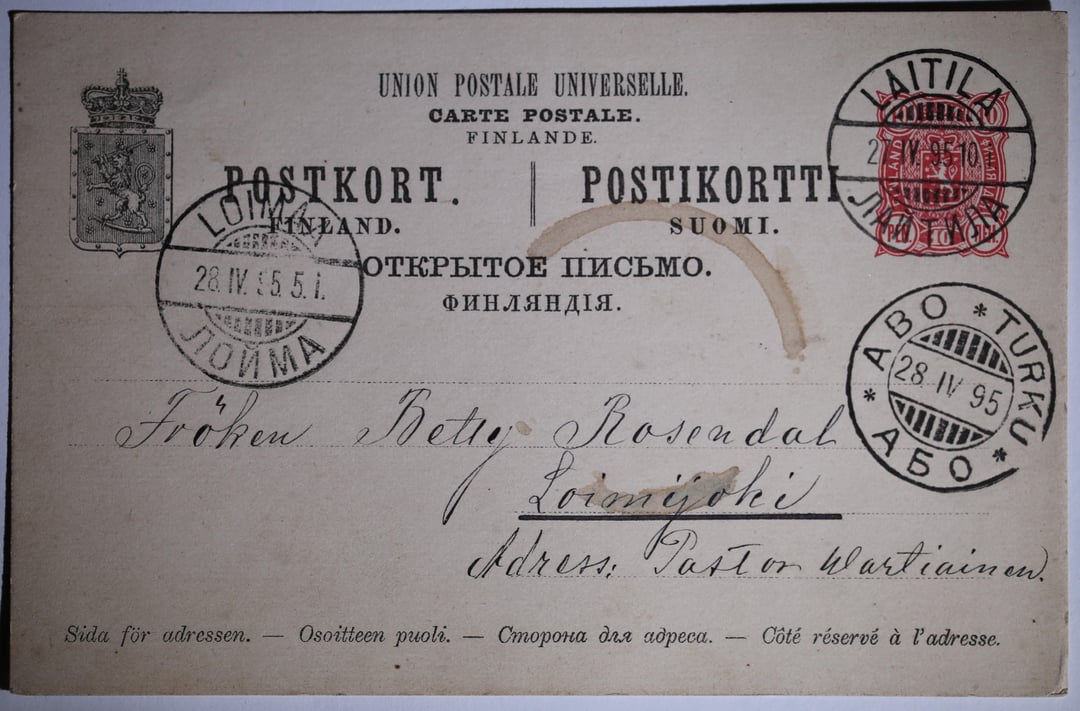 UNION POSTALE UNIVERSELLE.
CARTE POSTALE.
FINLANDE.
POSTKORT. POSTIKORTTI
FINLAND. SUOMI.
ОТКРЫТОЕ ПИСЬМО.
ФИНЛЯНДІЯ.
LAITILA
IV. 95.10
ЛАЙТИЛА
10
FINLAND
PEN. 10 ПЕН.
LOIMAA
28. IV. 95. 5. I.
ЛОЙМА
ÅBO * TURKU * АБО *
28. IV 95
Fröken Betty Rosendal
Loimijoki
Adress: Pastor Wartiainen.
Sida för adressen. — Osoitteen puoli. — Сторона для адреса. — Côté réservé à l'adresse.